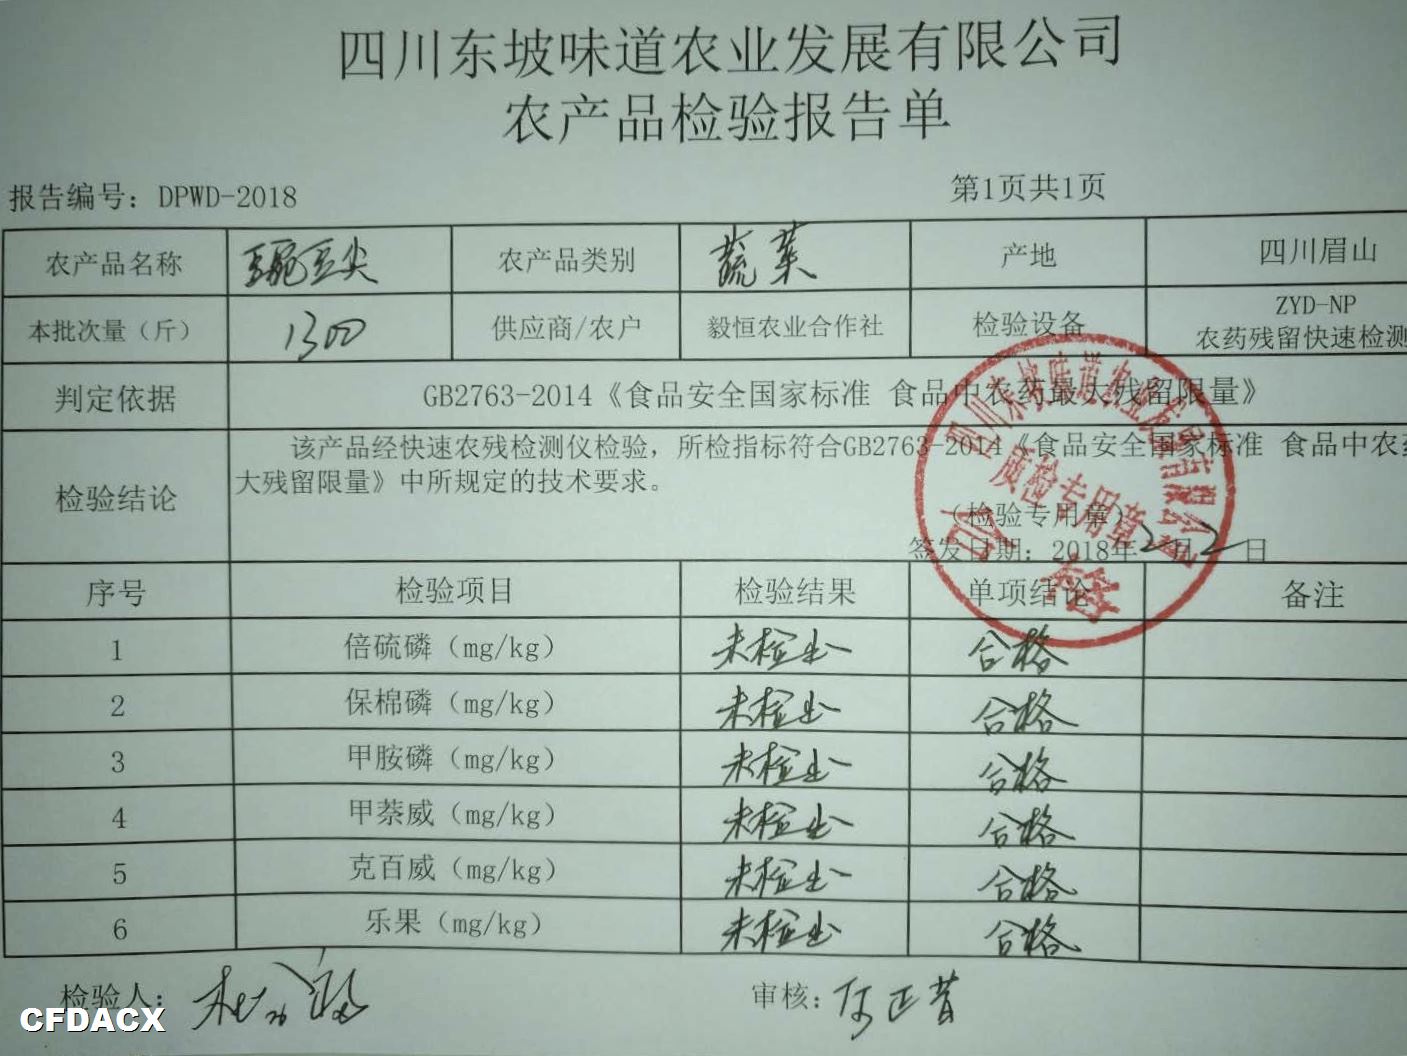 四川东坡味道农业发展有限公司
农产品检验报告单
报告编号：DPWD-2018
第1页共1页
农产品名称 豌豆尖 农产品类别 蔬菜 产地 四川眉山
本批次量（斤） 1300 供应商/农户 毅恒农业合作社 检验设备 ZYD-NP
农药残留快速检测
判定依据 GB2763-2014《食品安全国家标准 食品中农药最大残留限量》
检验结论 该产品经快速农残检测仪检验，所检指标符合GB2763-2014《食品安全国家标准 食品中农药
大残留限量》中所规定的技术要求。
（检验专用章）
签发日期：2018年2月2日
四川东坡味道农业发展有限公司
质检专用章
合格
序号 检验项目 检验结果 单项结论 备注
1 倍硫磷（mg/kg） 未检出 合格
2 保棉磷（mg/kg） 未检出 合格
3 甲胺磷（mg/kg） 未检出 合格
4 甲萘威（mg/kg） 未检出 合格
5 克百威（mg/kg） 未检出 合格
6 乐果（mg/kg） 未检出 合格
检验人：
审核：
CFDACX